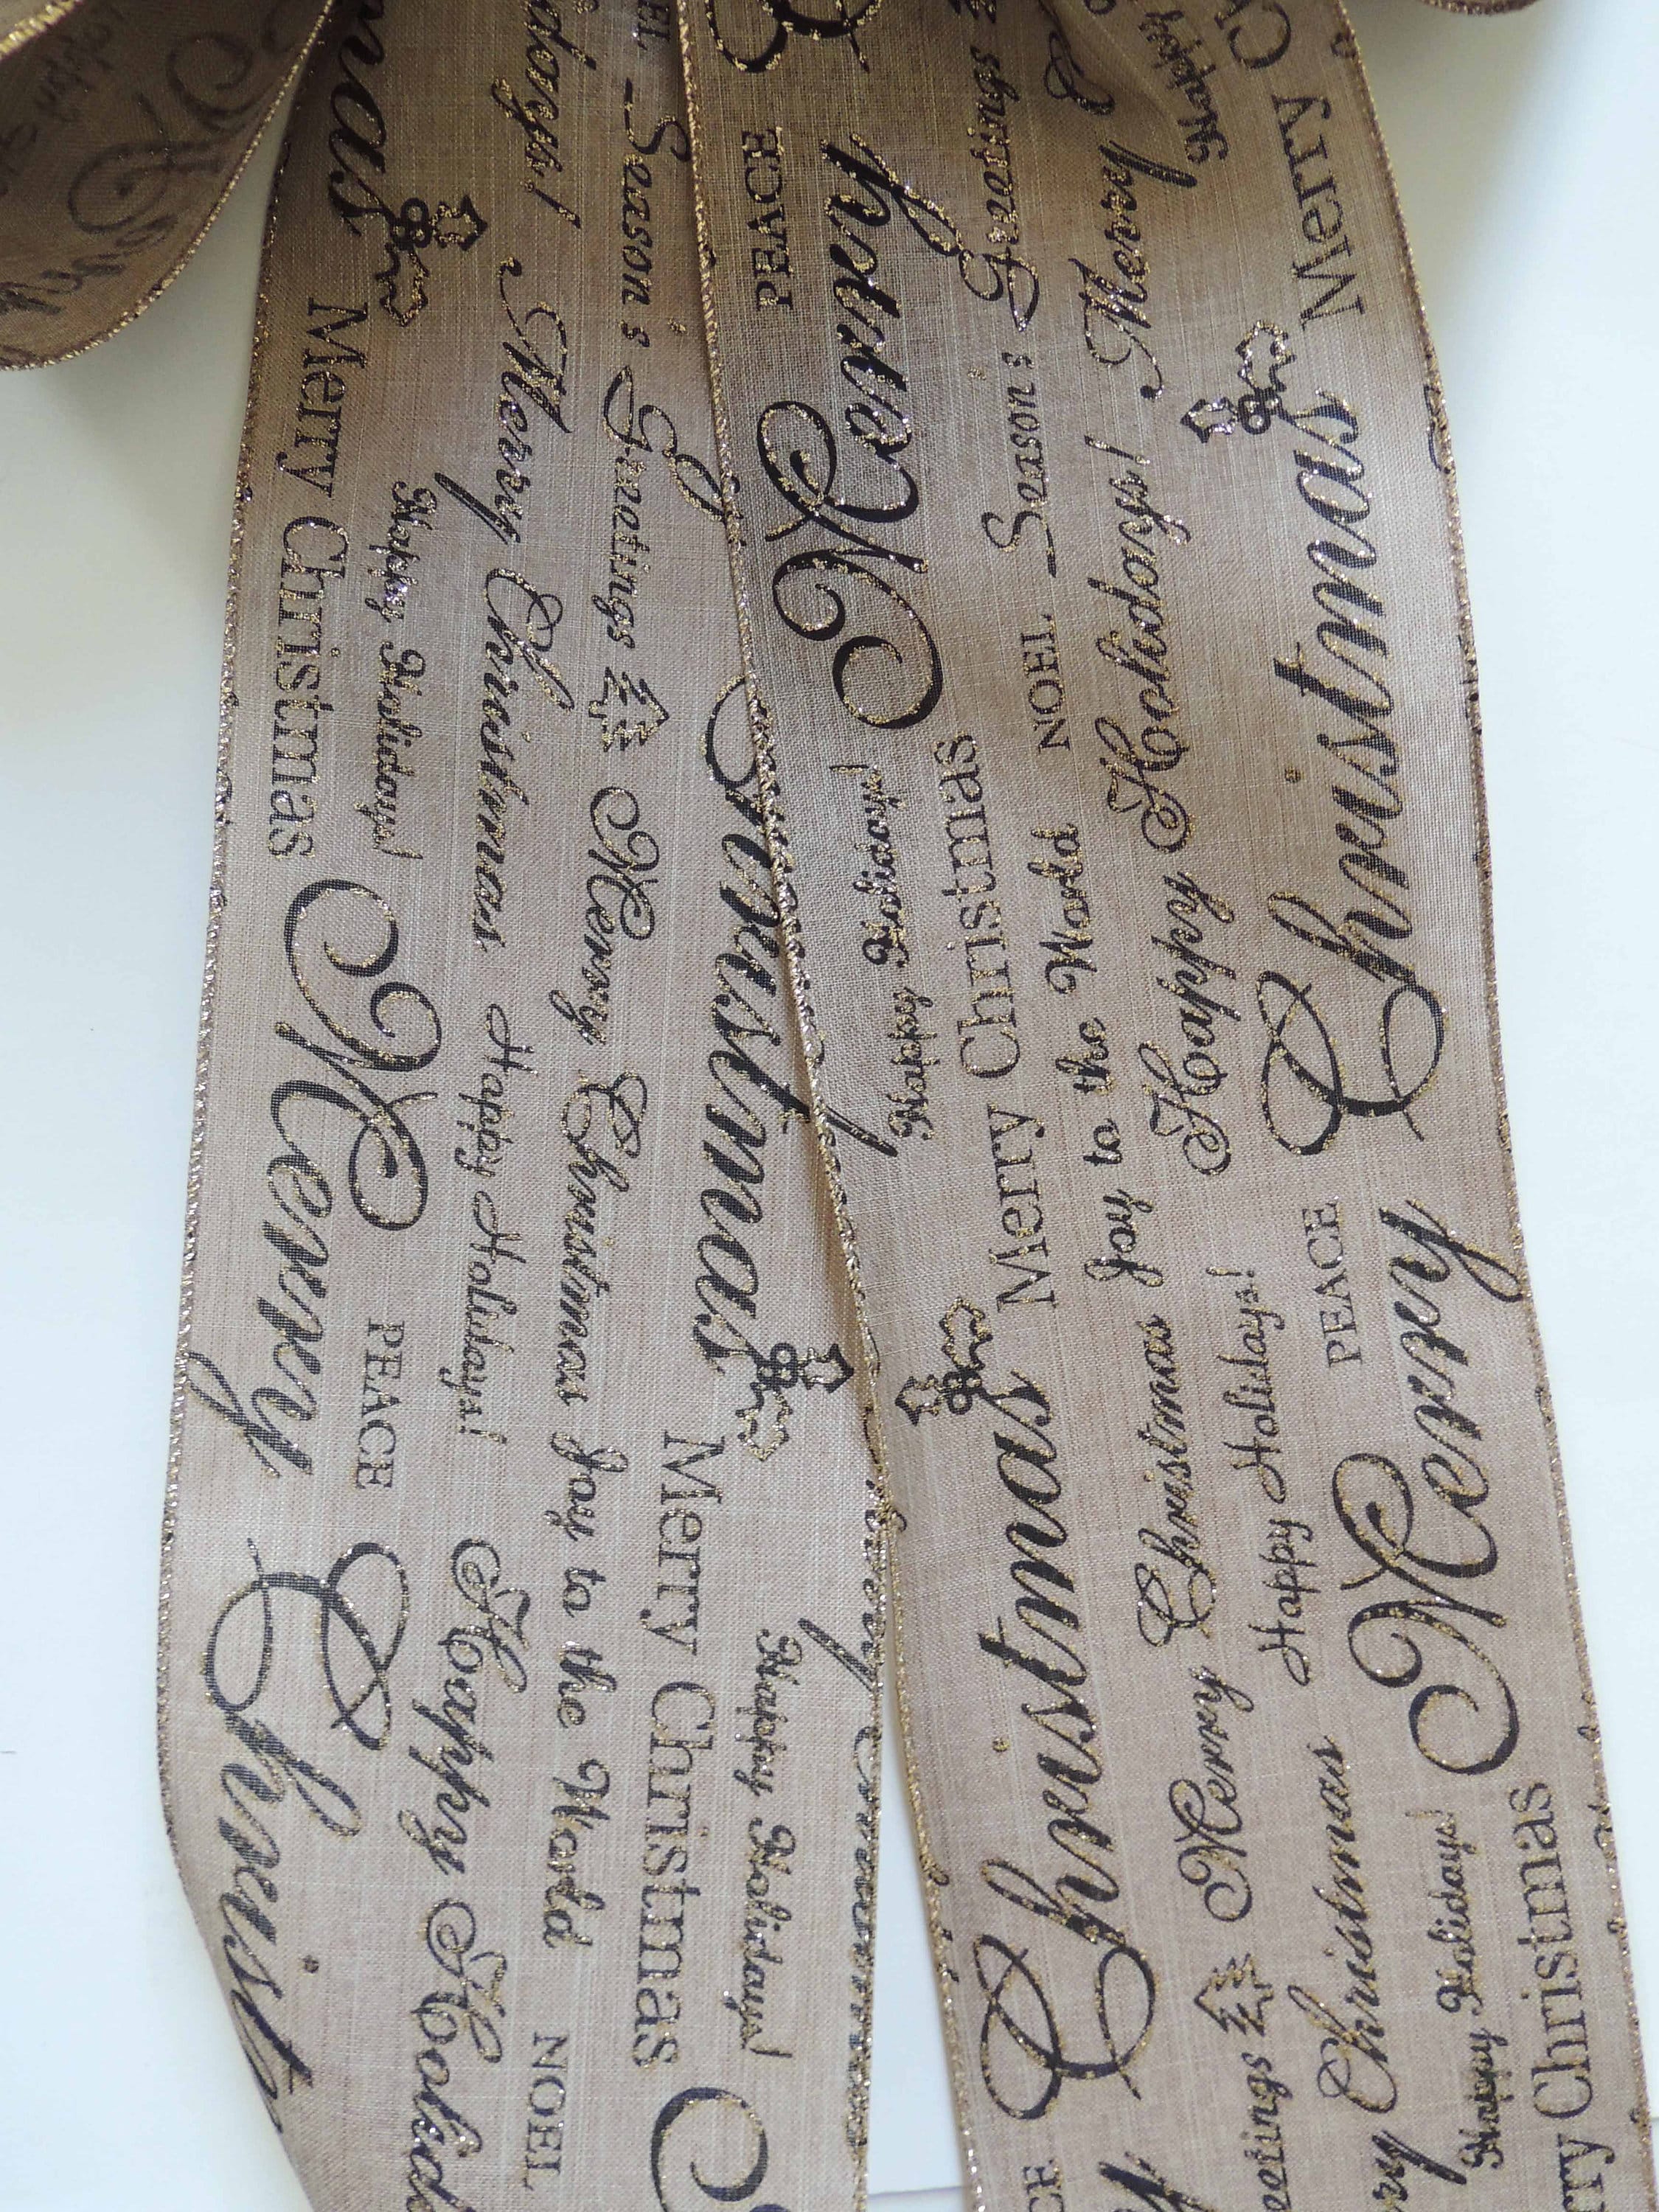 Christmas
Merry Christmas
Happy Holidays!
Merry
PEACE
Christ
Merry Christmas
Happy Holidays!
Happy
Season s Greetings
Merry Christmas
Joy to the World
NOEL
Christmas
Merry Christmas
Happy Holidays!
PEACE
Merry
Happy Holidays!
Merry Christmas
Christmas
Season s Greetings
NOEL
Joy to the World
Merry Christmas
Merry
Happy Holidays!
Happy Holidays!
Merry Christmas
Happy
Merry
Christmas
PEACE
Merry
Happy Holidays!
Merry Christmas